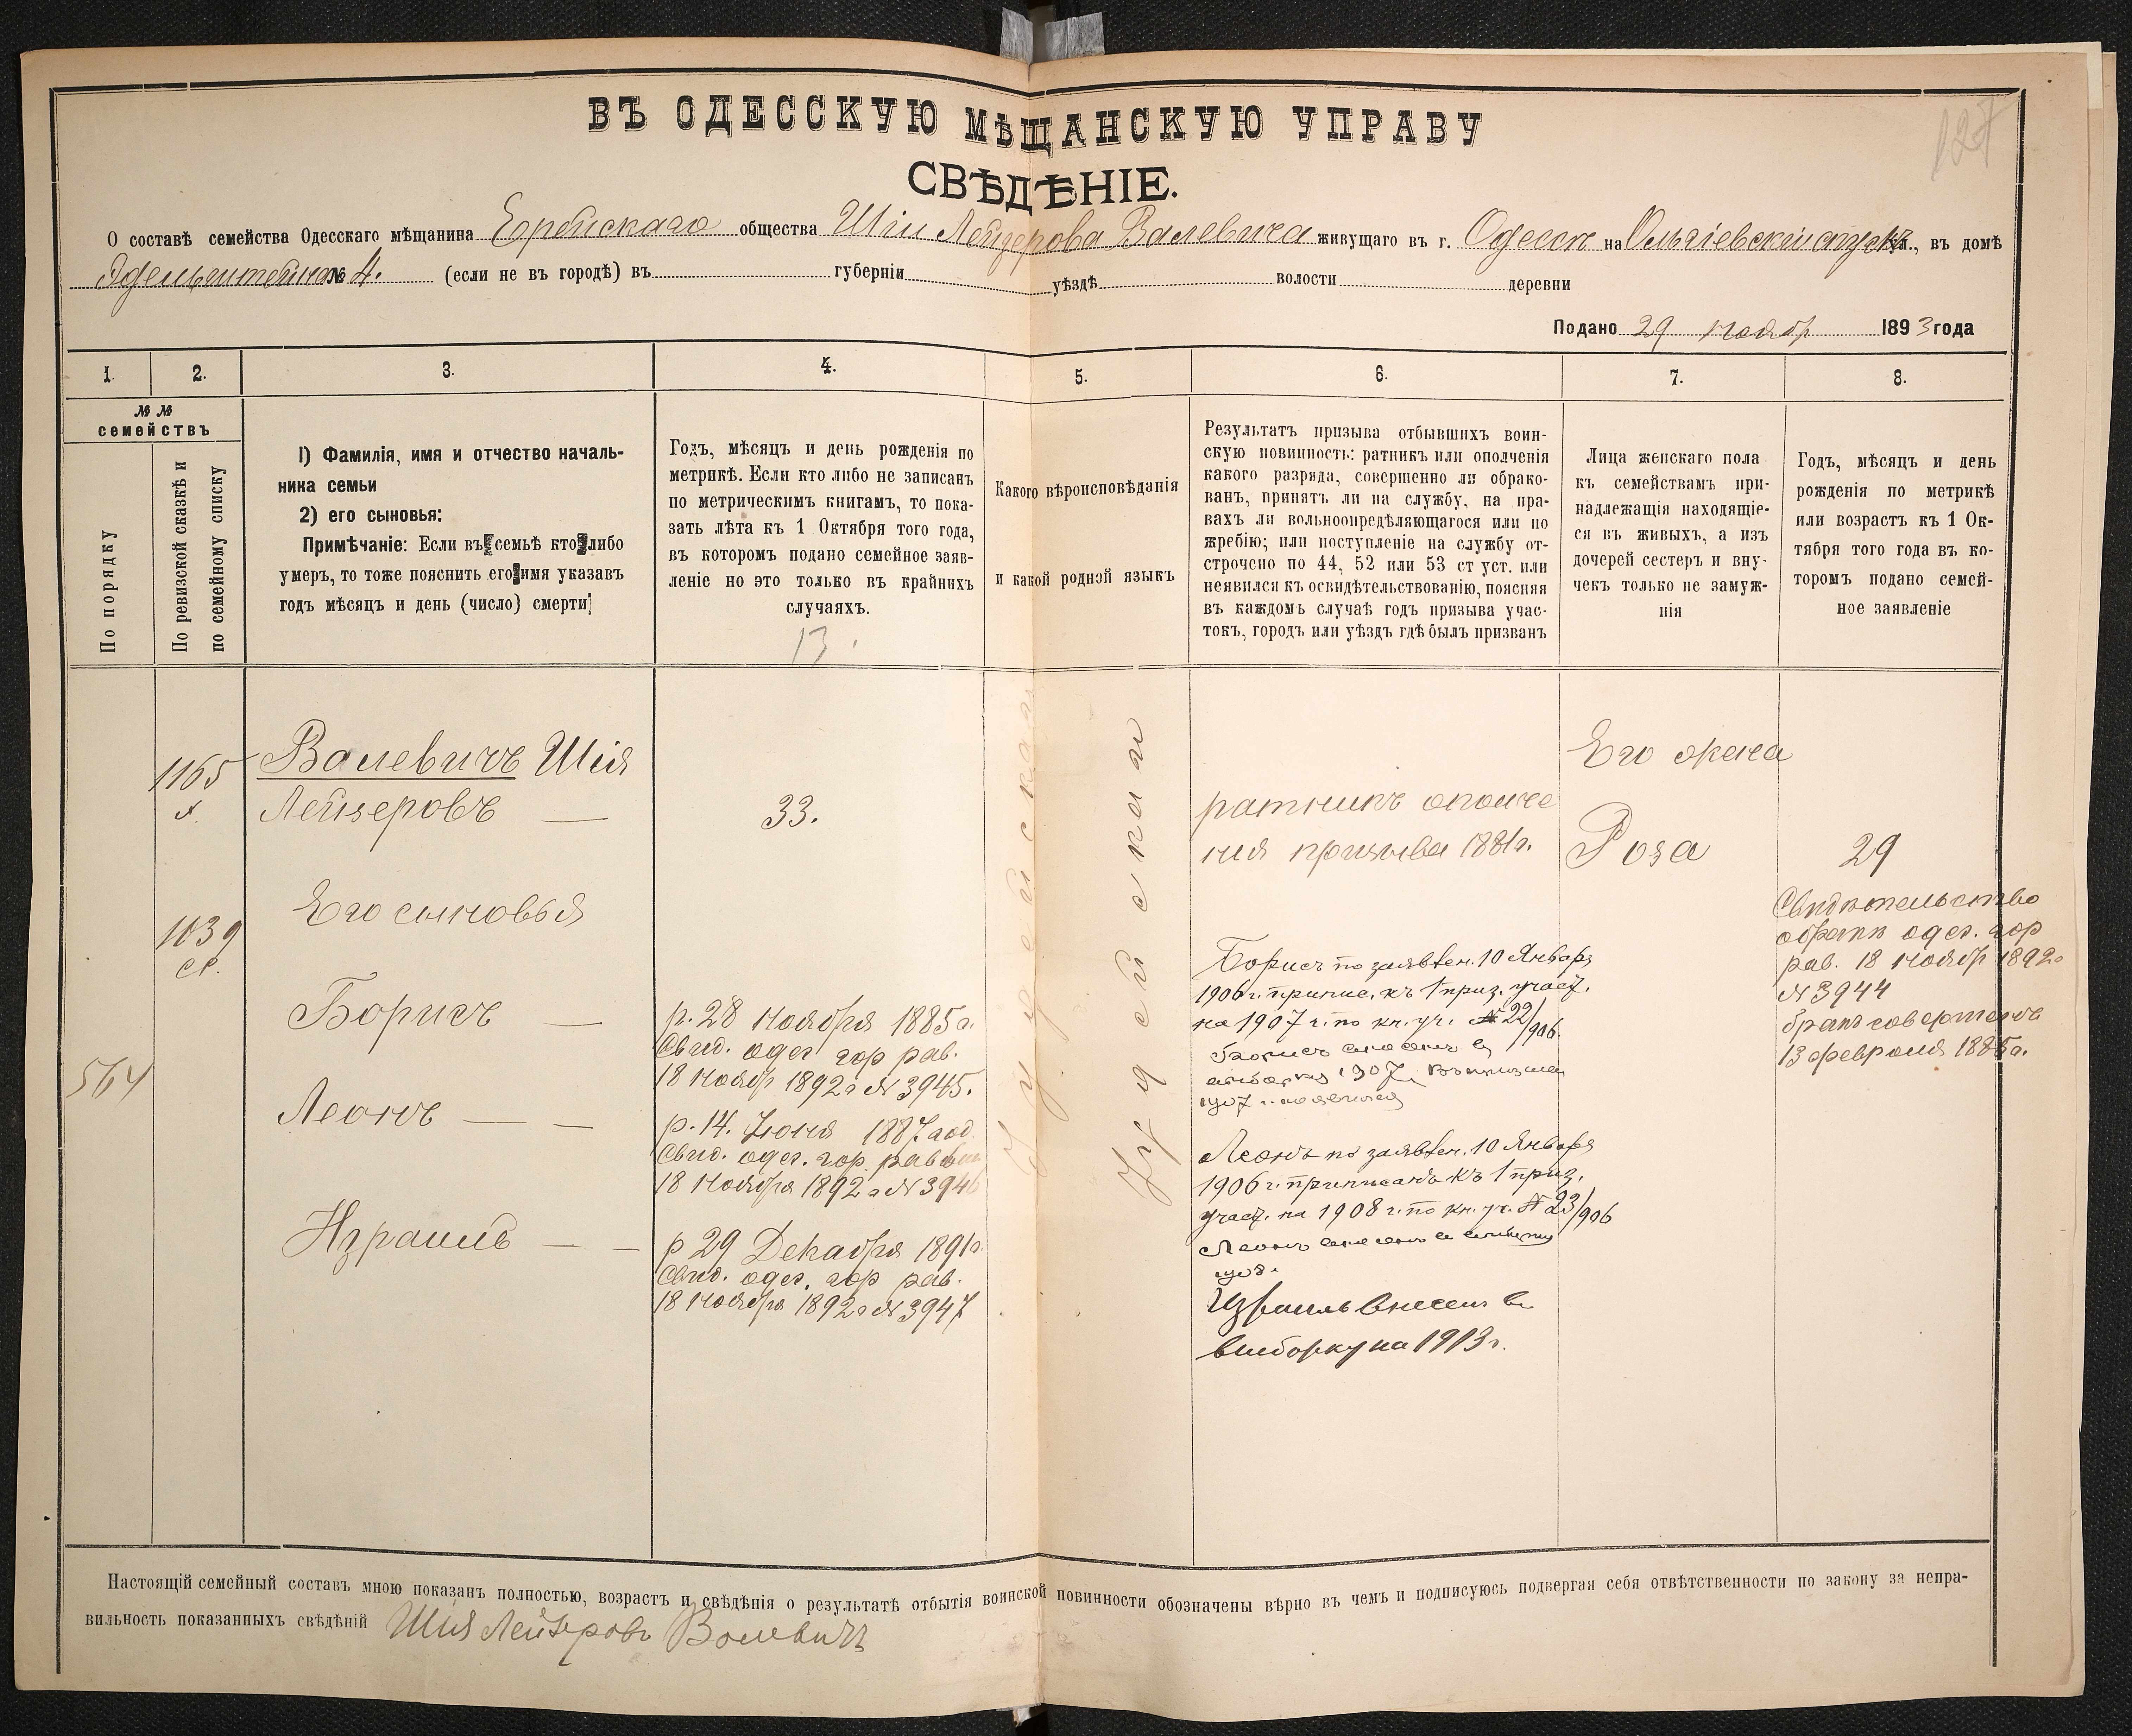 127
ВЪ ОДЕССКУЮ МѢЩАНСКУЮ УПРАВУ
СВѢДѢНІЕ.
О составѣ семейства Одесскаго мѣщанина Еврейскаго общества Шіи Лейзерова Валевича живущаго въ г. Одессѣ на Ольгіевской ул., въ домѣ
№ 4. (если не въ городѣ) въ губерніи уѣздѣ волости деревни
Подано 29 Ноября 1893 года
1. 2. 3. 4. 5. 6. 7. 8.
№ №
семействъ
По порядку
По ревизской сказкѣ и
по семейному списку
1) Фамилія, имя и отчество началь-
ника семьи
2) его сыновья:
Примѣчаніе: Если въ семьѣ кто либо
умеръ, то тоже пояснить его имя указавъ
годъ мѣсяцъ и день (число) смерти
Годъ, мѣсяцъ и день рожденія по
метрикѣ. Если кто либо не записанъ
по метрическимъ книгамъ, то пока-
зать лѣта къ 1 Октября того года,
въ которомъ подано семейное заяв-
леніе но это только въ крайнихъ
случаяхъ.
13.
Какого вѣроисповѣданія
и какой родной языкъ
Результатъ призыва отбывшихъ воин-
скую повинность: ратникъ или ополченія
какого разряда, совершенно ли обрако-
ванъ, принятъ ли на службу, на пра-
вахъ ли вольноопредѣляющагося или по
жребію; или поступленіе на службу от-
строчено по 44, 52 или 53 ст уст. или
неявился къ освидѣтельствованію, поясняя
въ каждомъ случаѣ годъ призыва учас-
токъ, городъ или уѣздъ гдѣ былъ призванъ
Лица женскаго пола
къ семействамъ при-
надлежащія находящіе-
ся въ живыхъ, а изъ
дочерей сестеръ и вну-
чекъ только не замуж-
нія
Годъ, мѣсяцъ и день
рожденія по метрикѣ
или возрастъ къ 1 Ок-
тября того года въ ко-
торомъ подано семей-
ное заявленіе
1165
Валевичъ Шія
Лейзеровъ —
33.
Іудейская
Іудейская
ратникъ ополче
нія призыва 1881г.
Его жена
Роза
29
Свидѣтельство
о бракѣ одес. гор
рав. 18 Ноябр 1892г
№ 3944
бракъ совершенъ
13 февраля 1885г.
1039
Его сыновья
564
Борисъ —
р. 28 Ноября 1885г.
Свид. одес гор рав.
18 Ноябр 1892г № 3945.
Борисъ по заявлен. 10 Января
1906г. припис. къ 1 приз. участ.
на 1907 г. по кн. уч. № 22/906.
Борисъ внесенъ въ
выборку 1907.
1907 г.
Леонъ — —
р. 14. Іюня 1887 год
Свид. одес. гор. равви
18 Ноября 1892г № 3946
Леонъ по заявлен. 10 Января
1906 г. приписанъ къ 1 приз.
участ. на 1908 г. по кн. уч. № 23/906
Леонъ внесенъ въ выборку
1908.
Израиль — —
р 29 Декабря 1891г.
Свид. одес. гор рав.
18 Ноября 1892г № 3947
Израиль внесенъ въ
выборку на 1913г.
Настоящій семейный составъ мною показанъ полностью, возрастъ и свѣдѣнія о результатѣ отбытія воинской повинности обозначены вѣрно въ чемъ и подписуюсь подвергая себя отвѣтственности по закону за непра-
вильность показанныхъ свѣдѣній Шія Лейзеровъ Волевичъ